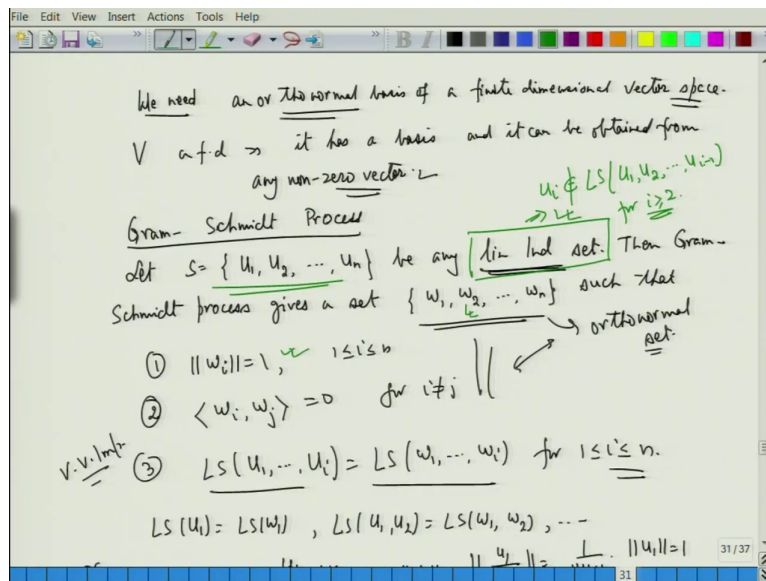 File Edit View Insert Actions Tools Help
We need an orthonormal basis of a finite dimensional vector space.
V a f.d ⇒ it has a basis and it can be obtained from
any non-zero vector.
u_i ∉ LS(u_1, u_2, ..., u_{i-1})
for i ≥ 2.
Gram-Schmidt Process
Let S = { u_1, u_2, ..., u_n } be any lin Ind set. Then Gram-
Schmidt process gives a set { w_1, w_2, ..., w_n } such that
orthonormal
set.
① ||w_i|| = 1, 1 ≤ i ≤ n
② < w_i, w_j > = 0 for i ≠ j
V.V.Imp
③ LS( u_1, ..., u_i ) = LS( w_1, ..., w_i ) for 1 ≤ i ≤ n.
LS(u_1) = LS(w_1), LS(u_1, u_2) = LS(w_1, w_2), ...
||u_1|| = 1
31/37
31